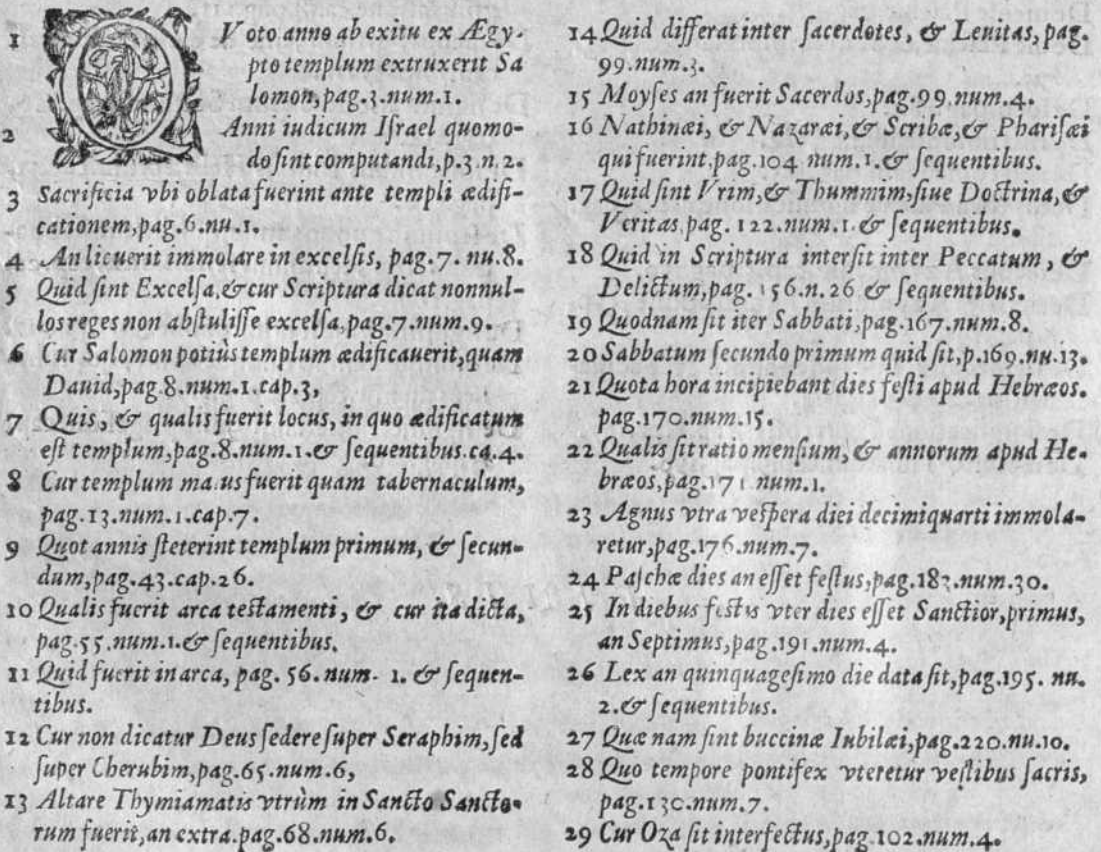 1 QVoto anno ab exitu ex Ægy-
pto templum extruxerit Sa
lomon, pag.3.num.1.
2 Anni iudicum Iſrael quomo-
do ſint computandi, p.3.n.2.
3 Sacrificia vbi oblata fuerint ante templi ædifi-
cationem, pag.6.nu.1.
4 An licuerit immolare in excelſis, pag.7. nu.8.
5 Quid ſint Excelſa, & cur Scriptura dicat nonnul-
los reges non abſtuliſſe excelſa, pag.7.num.9.
6 Cur Salomon potiùs templum ædificauerit, quam
Dauid, pag.8.num.1.cap.3,
7 Quis, & qualis fuerit locus, in quo ædificatum
eſt templum, pag.8.num.1.& ſequentibus.ca.4.
8 Cur templum ma.us fuerit quam tabernaculum,
pag.13.num.1.cap.7.
9 Quot annis ſteterint templum primum, & ſecun-
dum, pag.43.cap.26.
10 Qualis fuerit arca teſtamenti, & cur ita dicta,
pag.55.num.1.& ſequentibus.
11 Quid fuerit in arca, pag. 56.num. 1. & ſequen-
tibus.
12 Cur non dicatur Deus ſedere ſuper Seraphim, ſed
ſuper Cherubim, pag.65.num.6,
13 Altare Thymiamatis vtrùm in Sancto Sancto-
rum fuerit, an extra.pag.68.num.6.
14 Quid differat inter ſacerdotes, & Leuitas, pag.
99.num.3.
15 Moyſes an fuerit Sacerdos, pag.99.num.4.
16 Nathinæi, & Nazaræi, & Scribæ, & Phariſæi
qui fuerint, pag.104 num.1.& ſequentibus.
17 Quid ſint Vrim, & Thummim, ſiue Doctrina, &
Veritas, pag. 122.num.1.& ſequentibus.
18 Quid in Scriptura interſit inter Peccatum, &
Delictum, pag. 156.n.26 & ſequentibus.
19 Quodnam ſit iter Sabbati, pag.167.num.8.
20 Sabbatum ſecundo primum quid ſit, p.169.nu.13.
21 Quota hora incipiebant dies feſti apud Hebræos.
pag.170.num.15.
22 Qualis ſit ratio menſium, & annorum apud He-
bræos, pag.171.num.1.
23 Agnus vtra veſpera diei decimiquarti immola-
retur, pag.176.num.7.
24 Paſchæ dies an eſſet feſtus, pag.183.num.30.
25 In diebus feſtis vter dies eſſet Sanctior, primus,
an Septimus, pag.191.num.4.
26 Lex an quinquageſimo die data ſit, pag.195. nu.
2.& ſequentibus.
27 Quæ nam ſint buccinæ Iubilæi, pag.220.nu.10.
28 Quo tempore pontifex vteretur veſtibus ſacris,
pag.130.num.7.
29 Cur Oza ſit interfectus, pag.102.num.4.